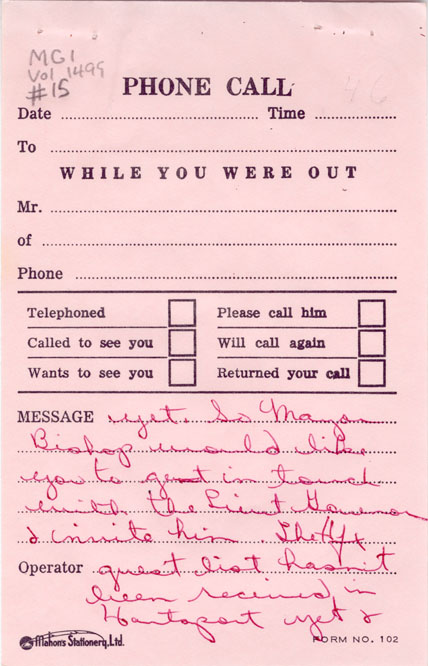 MG1
Vol 1499
#15
46
PHONE CALL
Date Time
To
WHILE YOU WERE OUT
Mr.
of
Phone
Telephoned Please call him
Called to see you Will call again
Wants to see you Returned your call
MESSAGE yet. So Mayor
Bishop would like
you to get in touch
with the Lieut Governor
& invite him. The Hfx
Operator guest list hasn't
been received in
Hantsport yet &
Mahon's Stationery, Ltd. FORM NO. 102